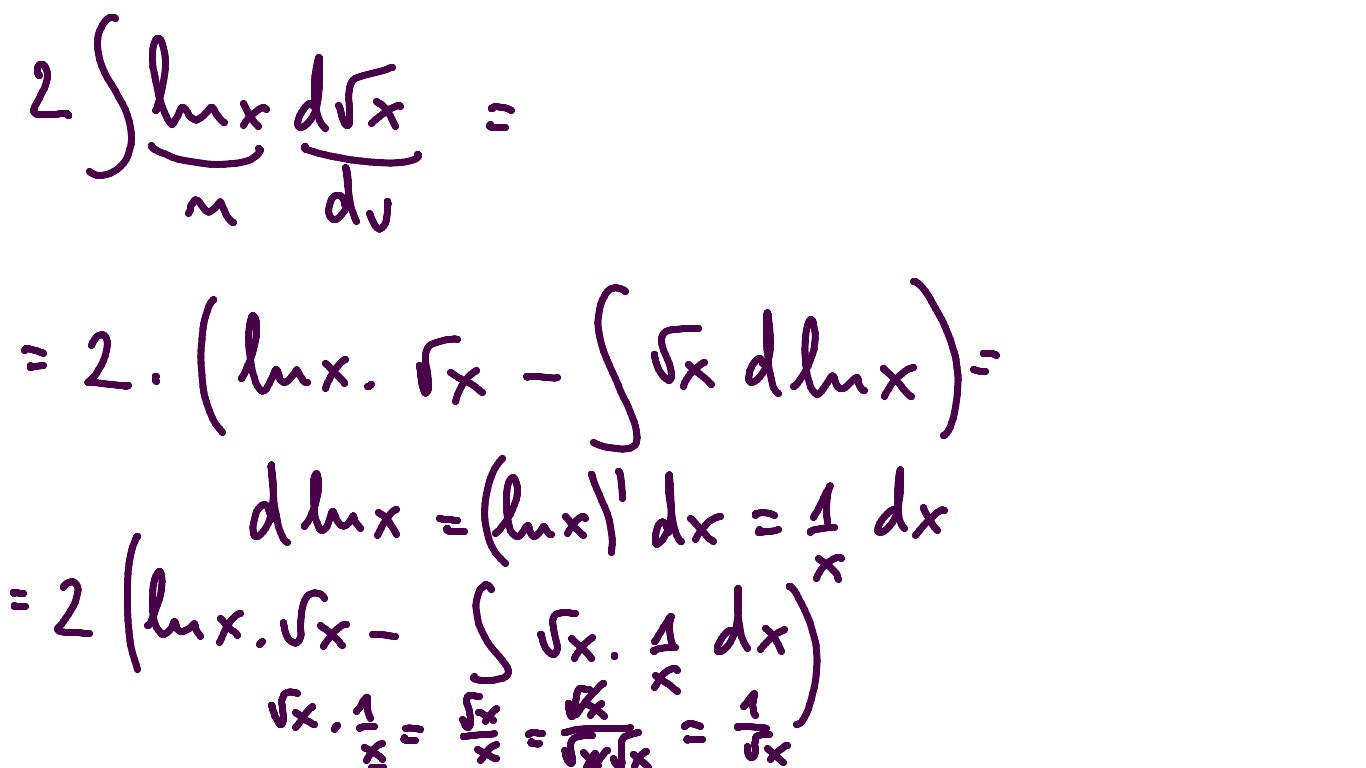 2 ∫ ln x d√x =
u dv
= 2 · ( ln x · √x − ∫ √x d ln x ) =
d ln x = (ln x)' dx = 1/x dx
= 2 ( ln x · √x − ∫ √x · 1/x dx )
√x · 1/x = √x/x = √x/(√x√x) = 1/√x